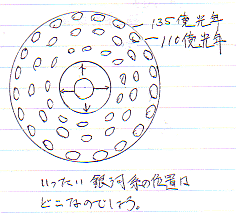 135億光年
110億光年
いったい 銀河系の位置は
どこなのでしょう。